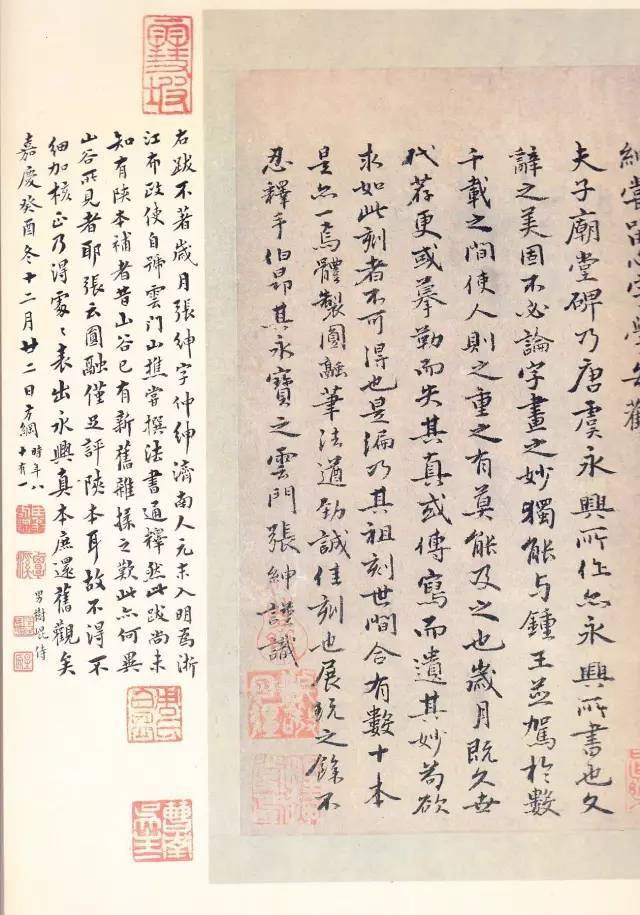 夫子廟堂碑乃唐虞永興所作亦永興所書也文
辭之美固不必論字畫之妙獨能与鍾王並駕於數
千載之間使人則之重之有莫能及之也歲月既久世
代荐更或摹勒而失其真或傳寫而遺其妙苟欲
求如此刻者不可得也是編乃其祖刻世間合有數十本
是亦一焉體製圓融筆法遒勁誠佳刻也展玩之餘不
忍釋手伯昂其永寶之雲門張紳謹識
右跋不著歲月張紳字仲紳濟南人元末入明爲浙
江布政使自號雲門山樵嘗撰法書通釋然此跋尚未
知有陝本補者昔山谷已有新舊雜揉之歎此亦何異
山谷所見者耶張云圓融僅足評陝本耳故不得不
細加核正乃得處〻表出永興真本庶還舊觀矣
嘉慶癸酉冬十二月廿二日方綱時年八十有一
男樹崐侍